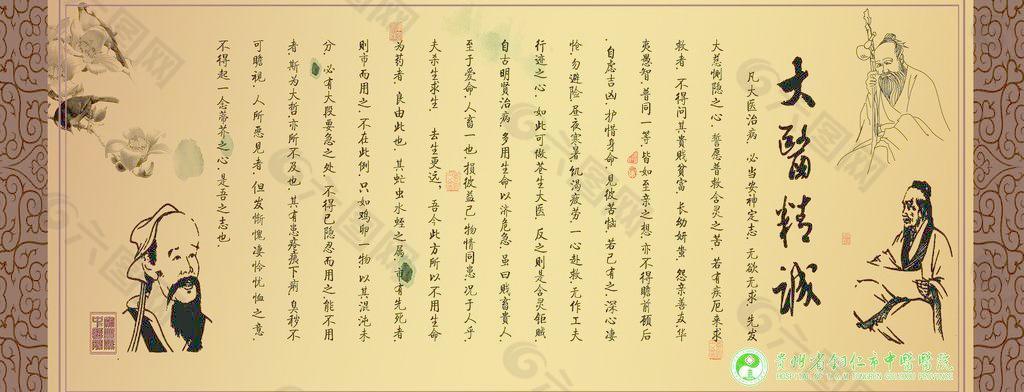 大醫精诚
凡大医治病，必当安神定志，无欲无求，先发
大慈恻隐之心，誓愿普救含灵之苦。若有疾厄来求
救者，不得问其贵贱贫富，长幼妍蚩，怨亲善友，华
夷愚智，普同一等，皆如至亲之想，亦不得瞻前顾后
，自虑吉凶，护惜身命，见彼苦恼，若己有之，深心凄
怆，勿避险，昼夜寒暑，饥渴疲劳，一心赴救，无作工夫
行迹之心，如此可做苍生大医，反之则是含灵钜贼。
自古明贤治病，多用生命以济危急，虽曰贱畜贵人，
至于爱命，人畜一也，损彼益己，物情同患，况于人乎
夫杀生求生，去生更远。吾今此方所以不用生命
为药者，良由此也。其虻虫水蛭之属，市有先死者
则市而用之，不在此例。只如鸡卵一物，以其混沌未
分，必有大段要急之处，不得已隐忍而用之，能不用
者，斯为大哲，亦所不及也。其有患疮痍下痢，臭秽不
可瞻视，人所恶见者，但发惭愧凄怜忧恤之意，
不得起一念蒂芥之心，是吾之志也
贵州省铜仁市中醫醫院